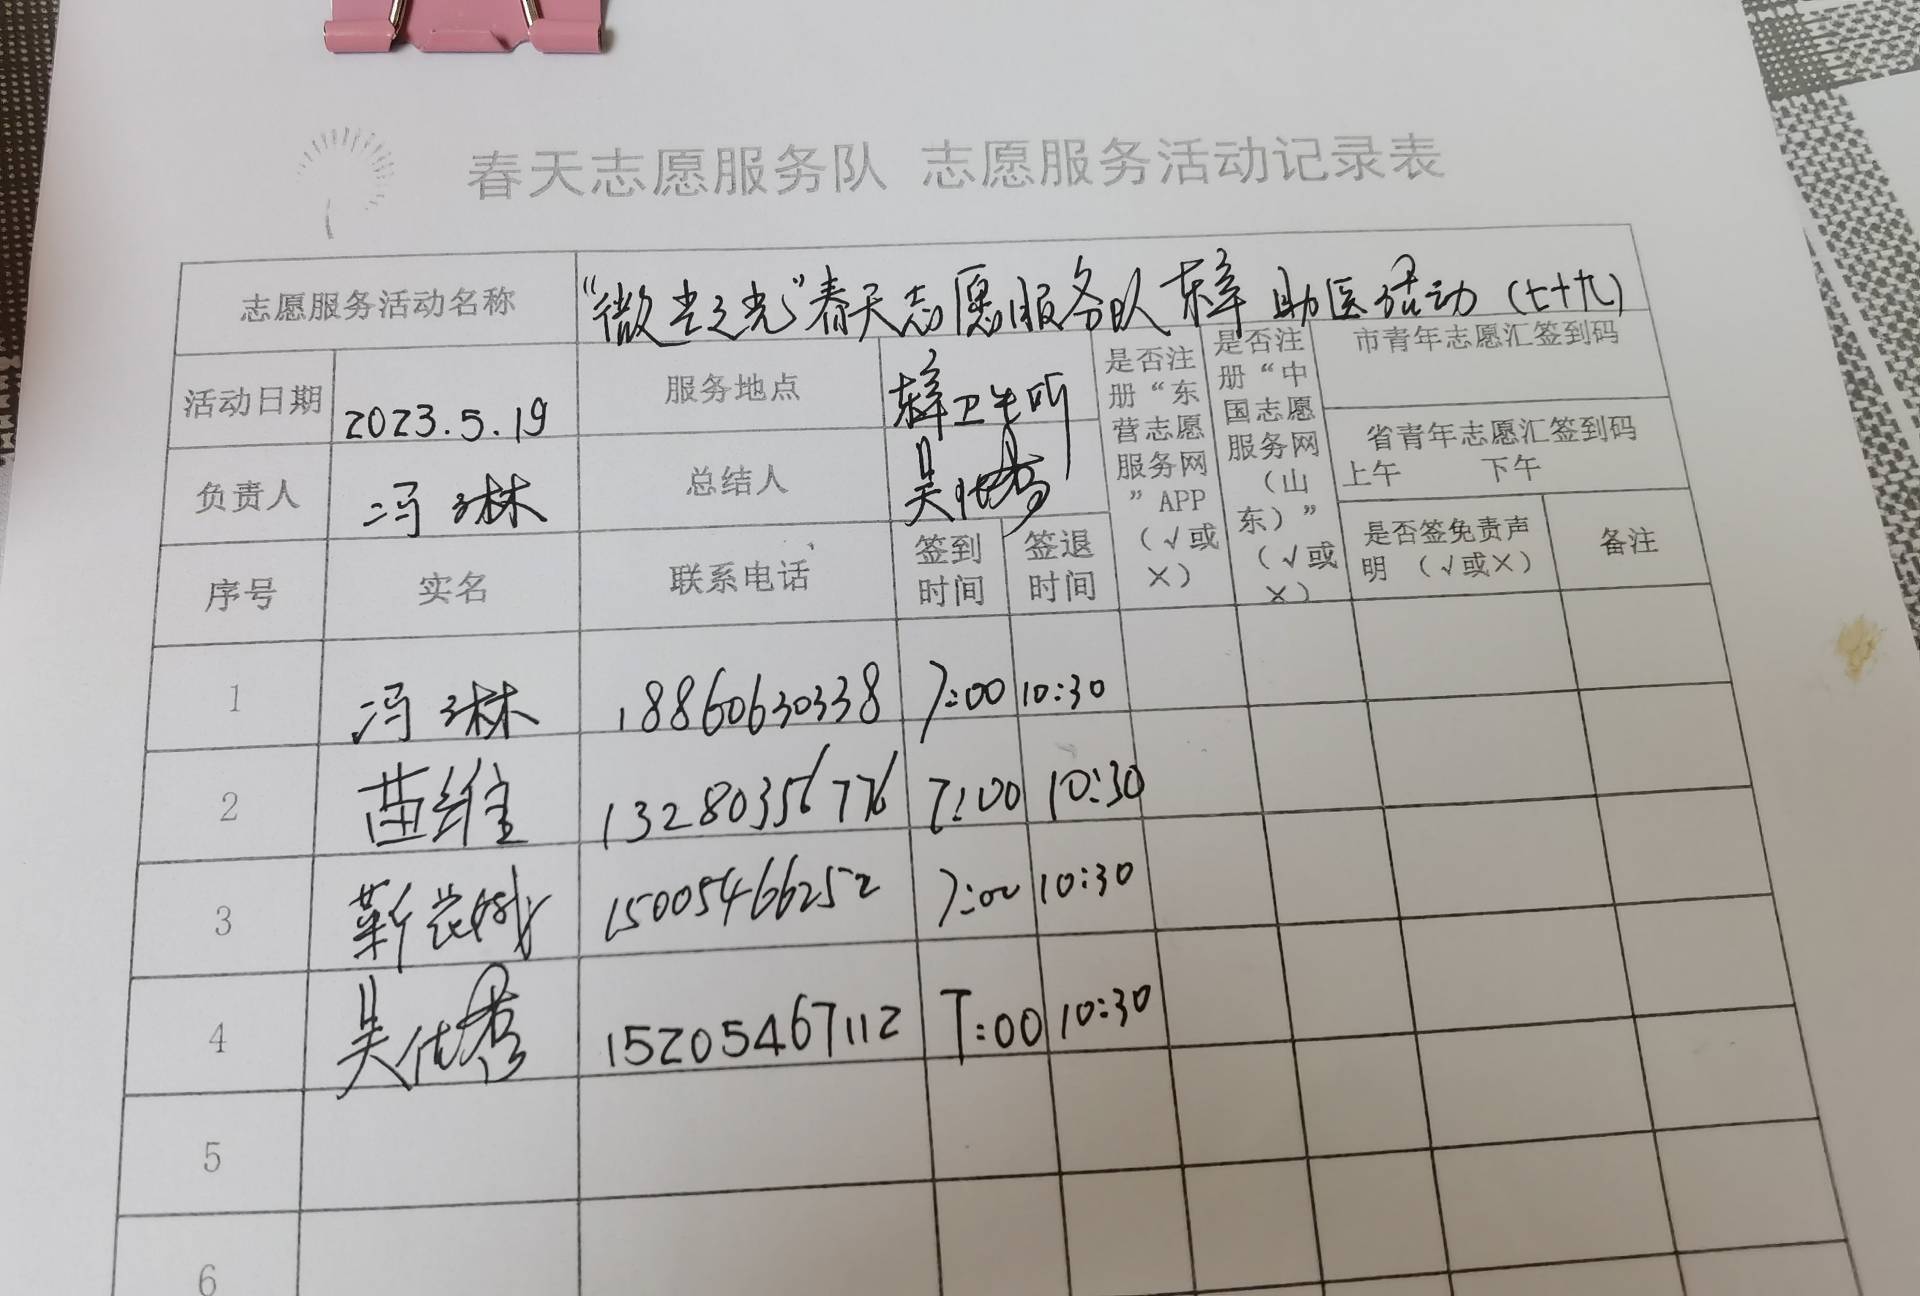 春天志愿服务队 志愿服务活动记录表
志愿服务活动名称 “微尘之光”春天志愿服务队 助医活动（七十九）
活动日期 2023.5.19 服务地点 卫生所
负责人 冯琳 总结人 吴
是否注册“东营志愿服务网”APP（√或×）
是否注册“中国志愿服务网（山东）”（√或×）
市青年志愿汇签到码
省青年志愿汇签到码
上午 下午
序号 实名 联系电话 签到时间 签退时间 是否签免责声明（√或×） 备注
1 冯琳 18860630338 7:00 10:30
2 苗维 13280356776 7:00 10:30
3 15005466252 7:00 10:30
4 吴 15205467112 7:00 10:30
5
6